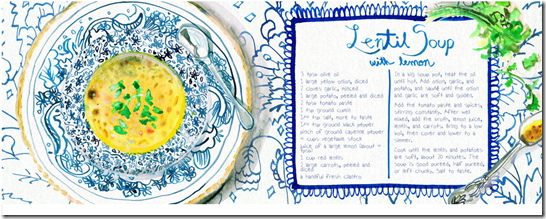 Lentil Soup
with lemon
1 tbsp olive oil
1 large yellow onion, diced
2 cloves garlic, minced
1 large potato, peeled and diced
2 tbsp tomato paste
1 tsp ground cumin
salt, more to taste
ground black pepper
pinch of ground cayenne pepper
cups vegetable stock
juice of a large lemon
1 cup red lentils
2 large carrots, peeled and
diced
a handful fresh cilantro
In a big soup pot, heat the oil
until hot. Add onion, garlic, and
potato, and sauté until the onion
and garlic are soft and golden.
Add the tomato paste and spices,
stirring constantly. After well
mixed, add the broth, lemon juice,
lentils, and carrots. Bring to a low
boil, then cover and lower to a
simmer.
Cook until lentils and potatoes
are soft, about 30 minutes. The
soup is good pureed, half pureed,
or left chunky. Salt to taste.